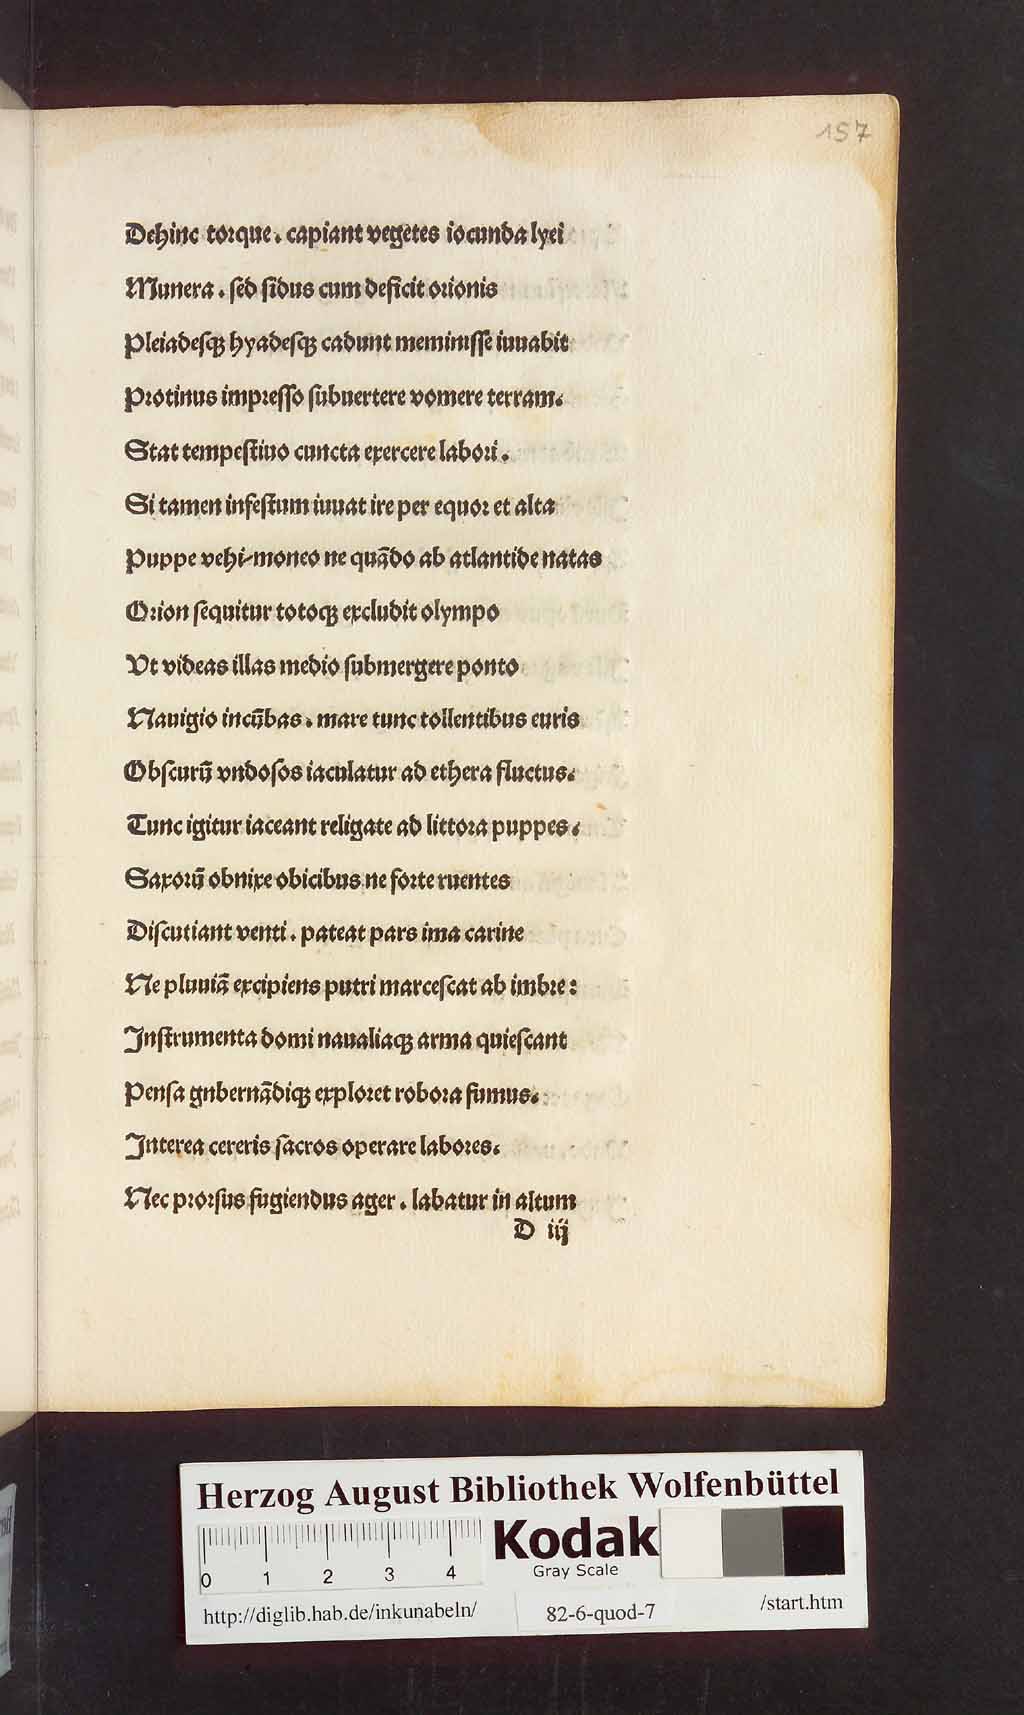 157
Dehinc torque. capiant vegetes iocunda lyei
Munera. sed sidus cum deficit orionis
Pleiadesqꝫ hyadesqꝫ cadunt meminisse iuuabit
Protinus impresso subuertere vomere terram.
Stat tempestiuo cuncta exercere labori.
Si tamen infestum iuuat ire per equor et alta
Puppe vehi-moneo ne quãdo ab atlantide natas
Orion sequitur totoqꝫ excludit olympo
Vt videas illas medio submergere ponto
Nauigio incũbas. mare tunc tollentibus euris
Obscurũ vndosos iaculatur ad ethera fluctus.
Tunc igitur iaceant religate ad littora puppes.
Saxorũ obnixe obicibus ne forte ruentes
Discutiant venti. pateat pars ima carine
Ne pluuiã excipiens putri marcescat ab imbre:
Instrumenta domi naualiaqꝫ arma quiescant
Pensa gnbernãdiqꝫ exploret robora fumus.
Interea cereris sacros operare labores.
Nec prorsus fugiendus ager. labatur in altum
D iij
Herzog August Bibliothek Wolfenbüttel
0 1 2 3 4
Kodak
Gray Scale
http://diglib.hab.de/inkunabeln/ 82-6-quod-7 /start.htm